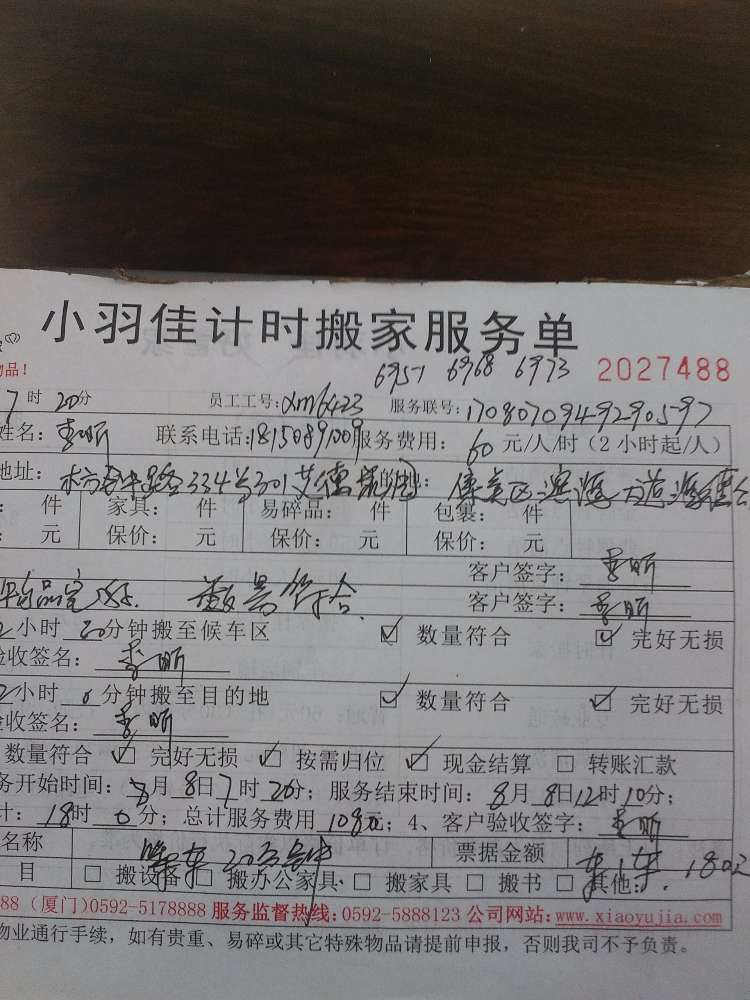 小羽佳计时搬家服务单
物品！ 6951 6968 6973 2027488
7时20分 员工工号:xm6423 服务联号:
姓名：李昕 联系电话:18150891009服务费用：60元/人/时（2小时起/人）
地址： 334号301
件 家具： 件 易碎品： 件 包裹： 件
元 保价： 元 保价： 元 保价： 元
客户签字：李昕
数量符合 客户签字：李昕
2小时20分钟搬至候车区 ☑ 数量符合 ☑ 完好无损
验收签名：李昕
2小时0分钟搬至目的地 ☑ 数量符合 ☑ 完好无损
验收签名：李昕
数量符合 ☑ 完好无损 ☑ 按需归位 ☑ 现金结算 □ 转账汇款
务开始时间：8月8日7时20分；服务结束时间：8月8日12时10分；
计：18时0分；总计服务费用1080元；4、客户验收签字：李昕
名称 票据金额
目 □ 搬设备 □ 搬办公家具 □ 搬家具 □ 搬书 □ 其他：
88（厦门）0592-5178888 服务监督热线:0592-5888123 公司网站:www.xiaoyujia.com
物业通行手续，如有贵重、易碎或其它特殊物品请提前申报，否则我司不予负责。